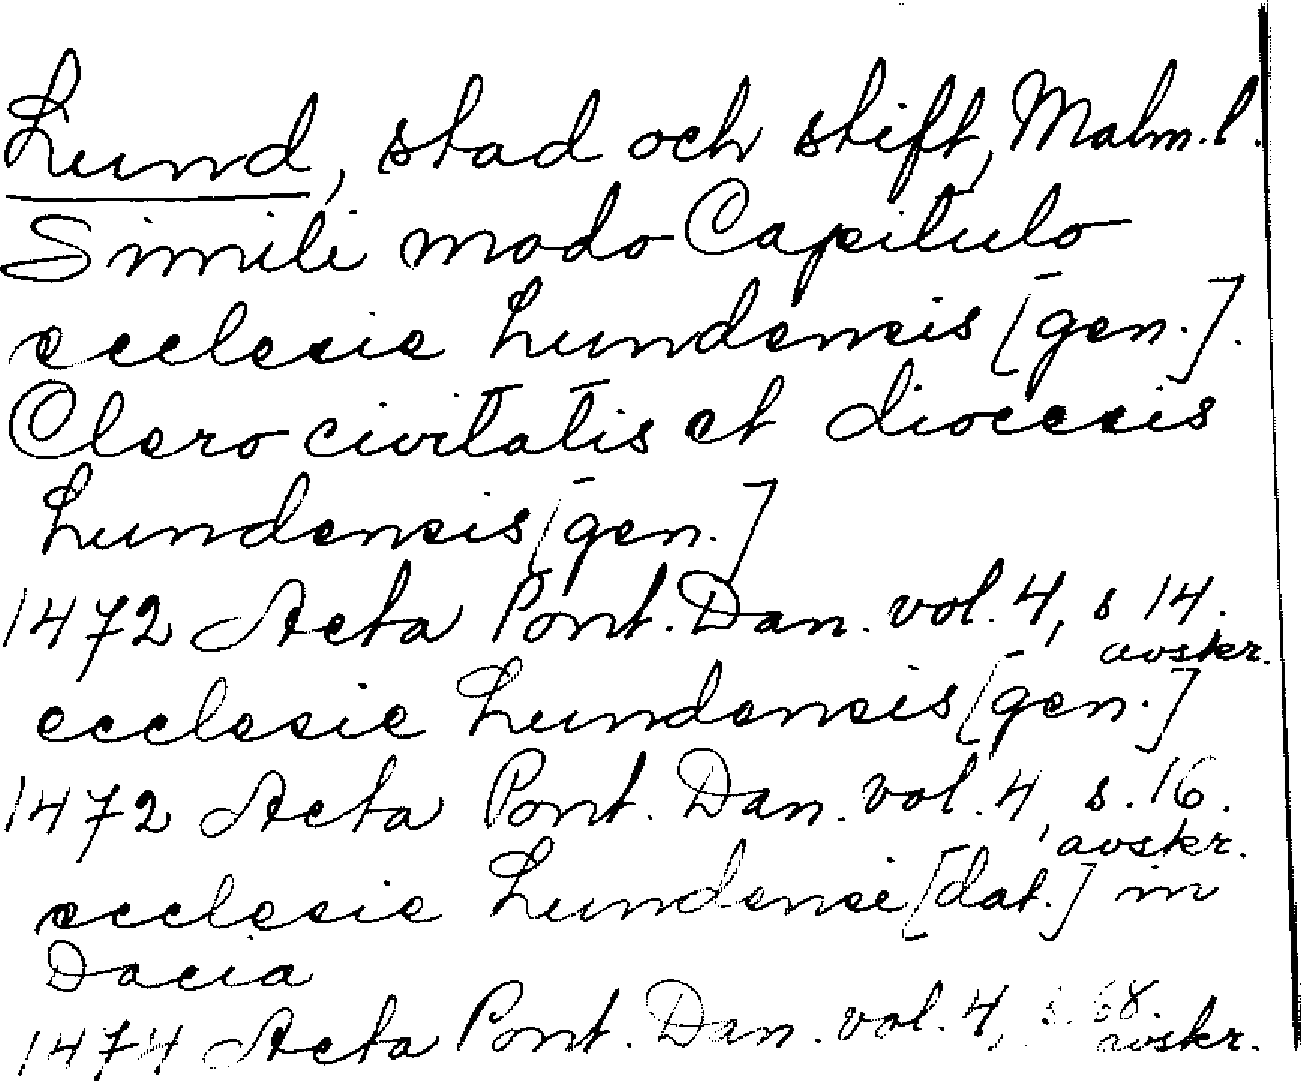 Lund, stad och stift, Malm.l.
Simili modo Capitulo
ecclesie Lundensis [gen.].
Clero civitatis et diocesis
Lundensis [gen.]
1472 Acta Pont. Dan. vol. 4, s 14.
avskr.
ecclesie Lundensis [gen.]
1472 Acta Pont. Dan. vol. 4, s. 16.
avskr.
ecclesie Lundensi [dat.] in
Dacia
1474 Acta Pont. Dan. vol. 4, s. 68.
avskr.